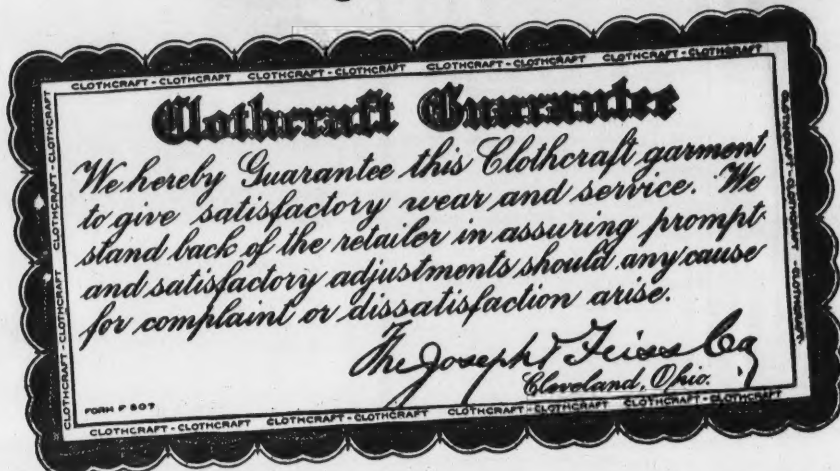 CLOTHCRAFT - CLOTHCRAFT CLOTHCRAFT - CLOTHCRAFT CLOTHCRAFT - CLOTHCRAFT CLOTHCRAFT - CLOTHCRAFT
Clothcraft Guarantee
We hereby Guarantee this Clothcraft garment
to give satisfactory wear and service. We
stand back of the retailer in assuring prompt
and satisfactory adjustments should any cause
for complaint or dissatisfaction arise.
The Joseph & Feiss Co
Cleveland, Ohio.
FORM F 607
CLOTHCRAFT - CLOTHCRAFT CLOTHCRAFT - CLOTHCRAFT CLOTHCRAFT - CLOTHCRAFT CLOTHCRAFT - CLOTHCRAFT
CLOTHCRAFT - CLOTHCRAFT CLOTHCRAFT - CLOTHCRAFT
CLOTHCRAFT - CLOTHCRAFT CLOTHCRAFT - CLOTHCRAFT